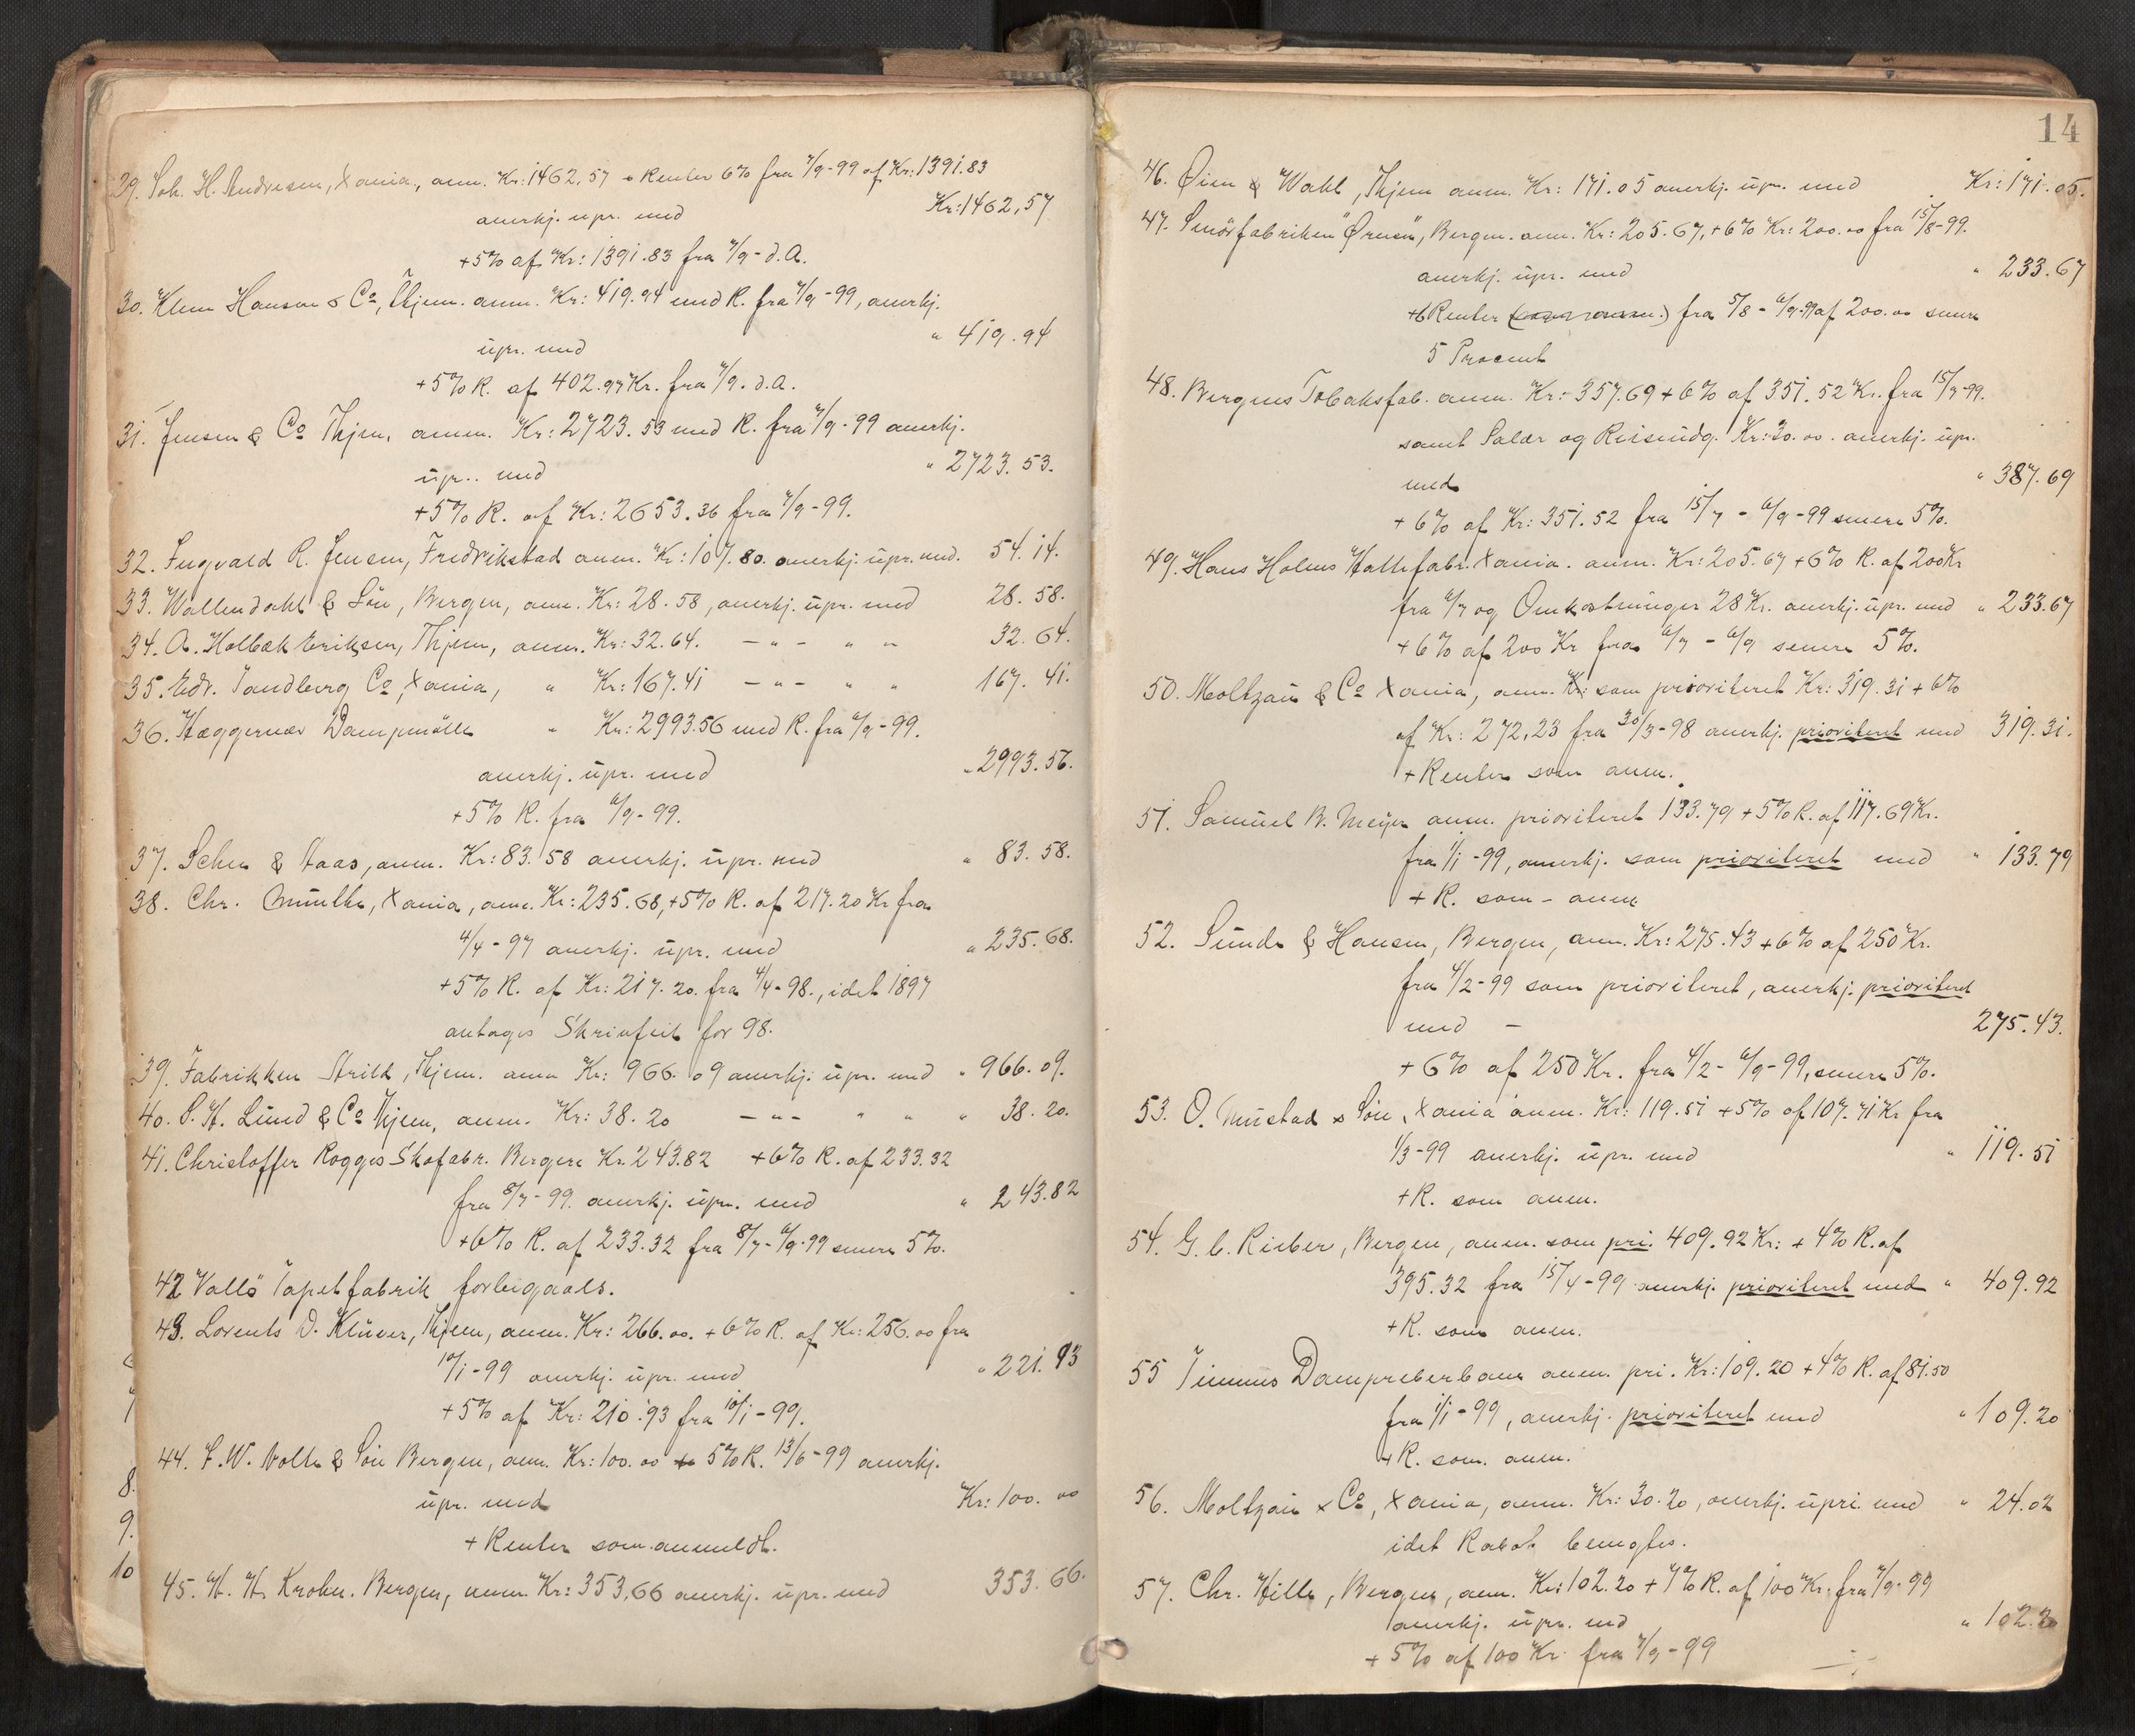 29. Joh. H. Andresen, Xania, anm. Kr: 1462,57 + Renter 6% fra 7/9-99 af Kr: 1391.83
anerkj. upr. med Kr: 1462,57
+5% af Kr: 1391.83 fra 7/9 - d.A.
30. Klem Hansen & Co, Thjem. anm. Kr: 419.94 med R. fra 7/9-99, anerkj.
upr. med " 419.94
+5% R. af 402.97 Kr. fra 7/9. d.A.
31. Jensen & Co Thjem, anm. Kr: 2723.53 med R. fra 7/9-99 anerkj.
upr. med " 2723.53.
+5% R. af Kr: 2653.36 fra 7/9-99.
32. Ingvald R. Jensen, Fredrikstad anm. Kr: 107.80. anerkj. upr. med. 54.14.
33. Wallendahl & Sön, Bergen, anm. Kr: 28.58, anerkj. upr. med 28.58.
34. A. Holbæk Eriksen, Thjem, anm. Kr: 32.64. - " - " " 32.64.
35. Edv. Sandberg Co, Xania, " Kr: 167.41 - " - " " 167.41.
36. Hæggernæs Dampmölle " Kr: 2993.56 med R. fra 6/9-99.
anerkj. upr. med " 2993.56.
+5% R. fra 6/9-99.
37. & Aaas, anm. Kr: 83.58 anerkj. upr. med " 83.58.
38. Chr. Müller, Xania, anm. Kr: 235.68, +5% R. af 217.20 Kr fra
4/4-97 anerkj. upr. med " 235.68.
+5% R. af Kr: 217.20. fra 4/4-98., idet 1897
antages Skrivfeil for 98.
39. Fabrikken Arild, Thjem. anm Kr: 966.09 anerkj. upr. med " 966.09.
40. S. H. Lund & Co Thjem, anm. Kr: 38.20 - " - " " " 38.20.
41. Christoffer Rogges Skofabr. Bergen Kr. 243.82 +6% R. af 233.32
fra 8/7-99. anerkj. upr. med " 243.82
+6% R. af 233.32 fra 8/7-6/9-99 senere 5%.
42 Vallö Tapetfabrik forbigaaes.
43. Lorents D. Klüver, Thjem, anm. Kr: 266.00. +6% R. af Kr: 256.00 fra
10/1-99 anerkj. upr. med " 221.93
+5% af Kr: 210.93 fra 10/1-99.
44. F. W. Nolte & Sön Bergen, anm. Kr: 100.00 5% R. 13/6-99 anerkj.
upr. med Kr: 100.00
+ Renter som anmeldt.
45. H. H. Krohn. Bergen, anm. Kr: 353,66 anerkj. upr. med 353.66.
8.
9.
10
14
46. Øien & Wahl, Thjem anm. Kr: 171.05 anerkj. upr. med Kr: 171.05.
47. Smörfabriken "Ørnen", Bergen. anm. Kr: 205.67, +6% Kr: 200.00 fra 15/8-99.
anerkj. upr. med " 233.67
+6 Renter fra 5/8 - 6/9-99 af 200.00 senere
5 Procent
48. Bergens Tobaksfab. anm. Kr: 357.69 + 6% af 351.52 Kr. fra 15/7-99.
samt Salær og Reiseudg. Kr: 30.00. anerkj. upr.
med " 387.69
+ 6% af Kr: 351.52 fra 15/7 - 6/9-99 senere 5%.
49. Hans Holms Hattefabr. Xania. anm. Kr: 205.67 +6% R. af 200 Kr
fra 6/7 og Omkostninger 28 Kr. anerkj. upr. med " 233.67
+6% af 200 Kr fra 6/7 - 6/9 senere 5%.
50. Moltzau & Co Xania, anm. Kr: som prioriteret Kr: 319.31 + 6%
af Kr: 272,23 fra 30/3-98 anerkj. prioriteret med 319.31.
+ Renter som anm.
51. Samuel B. Meyer anm. prioriteret 133.79 +5% R. af 117.69 Kr.
fra 1/1-99, anerkj. som prioriteret med " 133.79
+ R. som - anm
52. Sunde & Hansen, Bergen, anm. Kr: 275.43 +6% af 250 Kr.
fra 4/2-99 som prioriteret, anerkj. prioriteret
med - 275.43.
+ 6% af 250 Kr. fra 4/2-6/9-99, senere 5%.
53. O. Mustad & Sön, Xania anm. Kr: 119.51 +5% af 107.71 Kr fra
1/3-99 anerkj. upr. med " 119.51
+R. som anm.
54. G. C. Rieber, Bergen, anm. som pri. 409.92 Kr: + 4% R. af
395.32 fra 15/4-99 anerkj. prioriteret med " 409.92
+R. som anm.
55 Timms Dampreberbane anm. pri. Kr: 109.20 +4% R. af 81.50
fra 1/1-99, anerkj. prioriteret med " 109.20
+R. som. anm.
56. Moltzau & Co, Xania, anm. Kr: 30.20, anerkj. upri. med " 24.02
idet Rabat benegtes.
57. Chr. Hille, Bergen, anm. Kr: 102.20 + 7% R. af 100 Kr. fra 7/9-99
anerkj. upr. med " 102.20
+ 5% af 100 Kr. fra 7/9-99